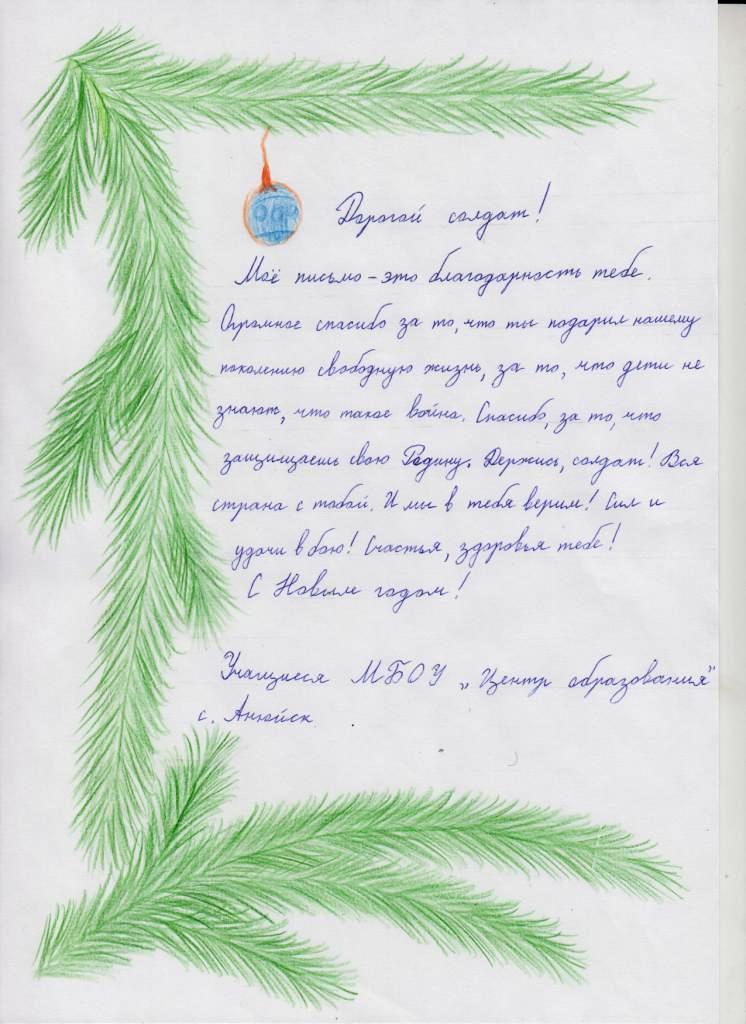 Дорогой солдат!
Моё письмо – это благодарность тебе.
Огромное спасибо за то, что ты подарил нашему
поколению свободную жизнь, за то, что дети не
знают, что такое война. Спасибо, за то, что
защищаешь свою Родину. Держись, солдат! Вся
страна с тобой. И мы в тебя верим! Сил и
удачи в бою! Счастья, здоровья тебе!
С Новым годом!
Учащиеся МБОУ „Центр образования"
с. Анюйск